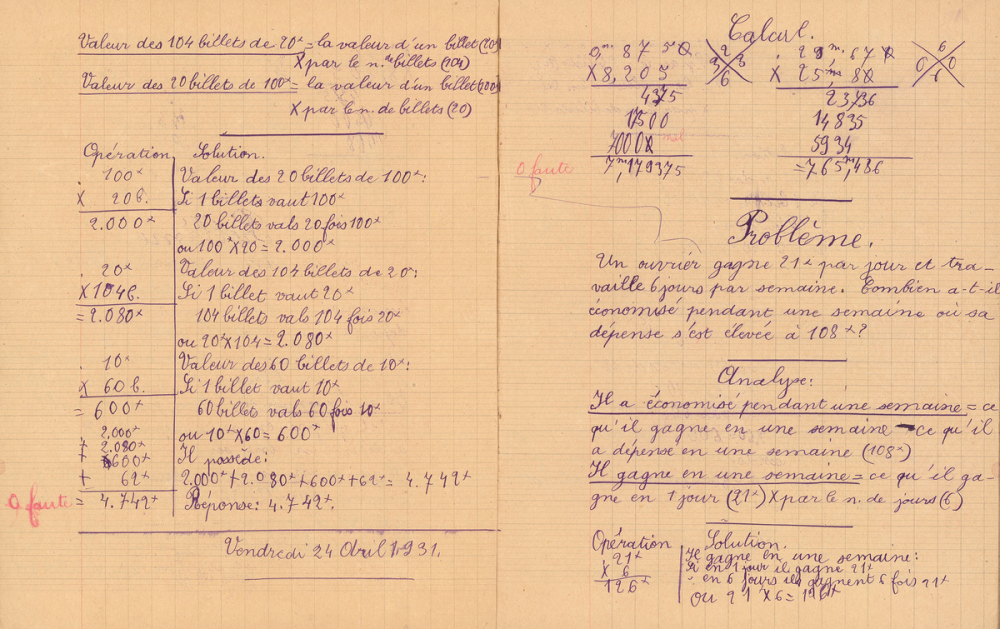 Valeur des 104 billets de 20ᶠ = la valeur d'un billet (20)
X par le n. de billets (104)
Valeur des 20 billets de 100ᶠ = la valeur d'un billet (100)
X par le n. de billets (20)
Opération Solution.
100ᶠ Valeur des 20 billets de 100ᶠ:
X 20b. Si 1 billets vaut 100ᶠ
2.000ᶠ 20 billets vals 20 fois 100ᶠ
ou 100ᶠ X 20 = 2.000ᶠ
20ᶠ Valeur des 104 billets de 20ᶠ:
X 104b. Si 1 billet vaut 20ᶠ
= 2.080ᶠ 104 billets vals 104 fois 20ᶠ
ou 20ᶠ X 104 = 2.080ᶠ
10ᶠ Valeur des 60 billets de 10ᶠ:
X 60 b. Si 1 billet vaut 10ᶠ
= 600ᶠ 60 billets vals 60 fois 10ᶠ
2.000ᶠ ou 10ᶠ X 60 = 600ᶠ
+ 2.080ᶠ
+ 600ᶠ Il possède:
+ 62ᶠ 2.000ᶠ + 2.080ᶠ + 600ᶠ + 62ᶠ = 4.742ᶠ
0 faute = 4.742ᶠ Réponse: 4.742ᶠ.
Vendredi 24 Avril 1931.
Calcul.
0,ᵐ 8750 2 3 3 6 29ᵐ,670 6 0 0 6
X 8,205 X 25ᵐ 80
4375 23736
1750 0 14835
7000 5934
7ᵐ,179375 = 765ᵐ,486
0 faute
Problème.
Un ouvrier gagne 21ᶠ par jour et tra-
vaille 6 jours par semaine. Combien a-t-il
économisé pendant une semaine où sa
dépense s'est élevée à 108ᶠ?
Analyse:
Il a économisé pendant une semaine = ce
qu'il gagne en une semaine - ce qu'il
a dépense en une semaine (108ᶠ)
Il gagne en une semaine = ce qu'il ga-
gne en 1 jour (21ᶠ) X par le n. de jours (6)
Opération Solution.
21ᶠ Il gagne en une semaine:
X 6 Si en 1 jour il gagne 21ᶠ
126ᶠ en 6 jours il gagnent 6 fois 21ᶠ
ou 21ᶠ X 6 = 126ᶠ